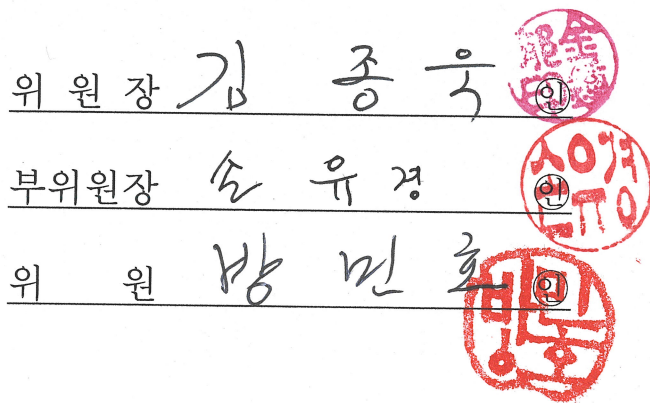 위 원 장 김 종 욱 인
부위원장 손 유 경 인
위 원 방 민 호 인